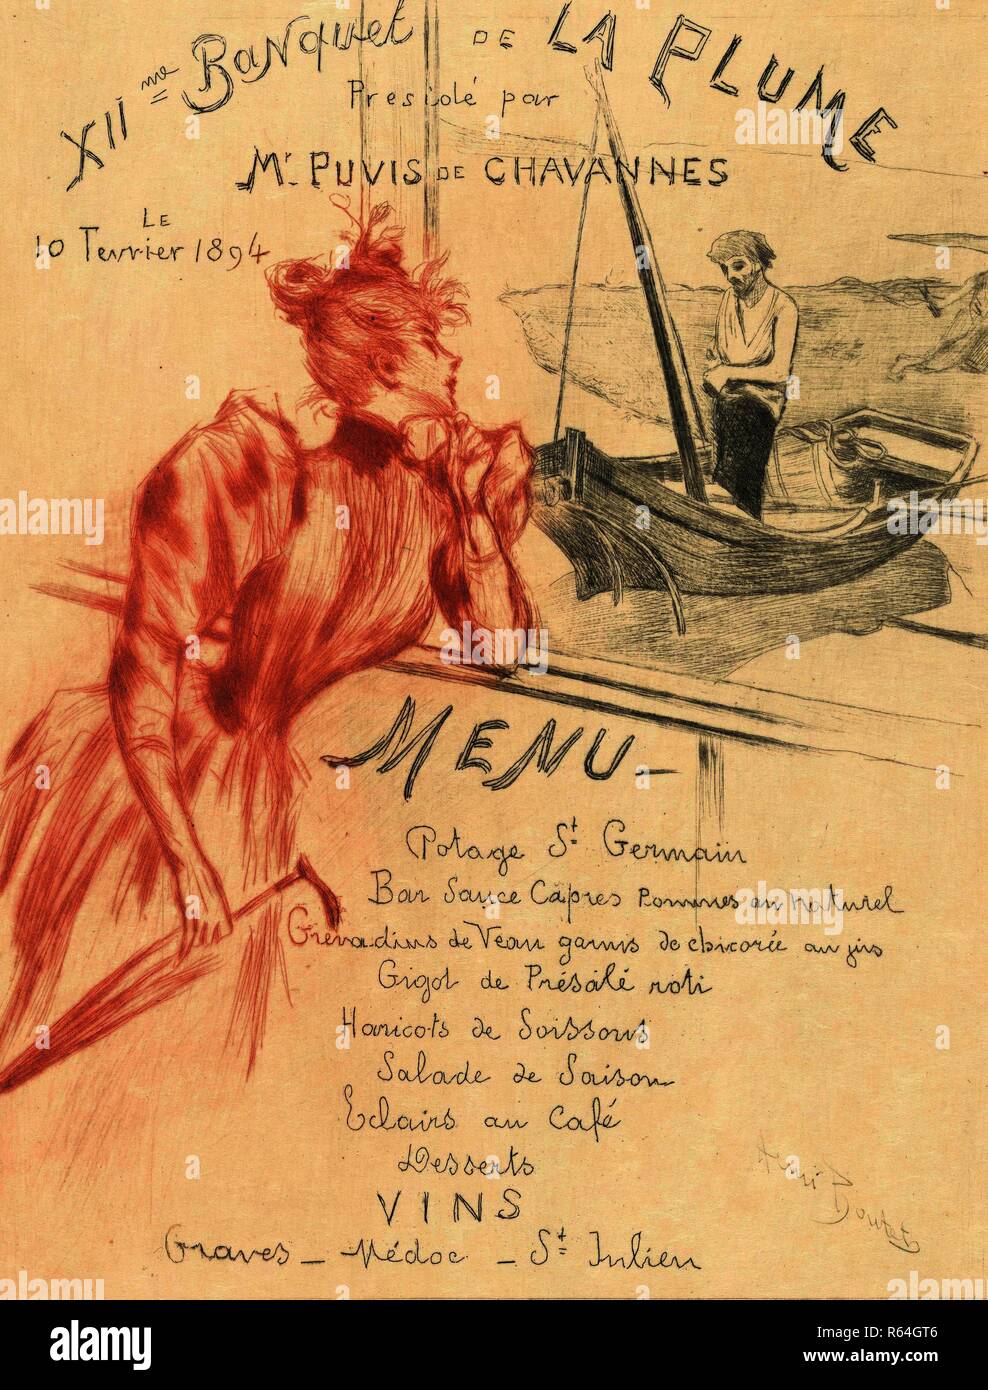 XIIme Banquet DE LA PLUME
Presidé par
Mr. PUVIS DE CHAVANNES
LE
10 Fevrier 1894
MENU
Potage St Germain
Bar Sauce Câpres Pommes au naturel
Grenadins de Veau garnis de chicorée au jus
Gigot de Présalé roti
Haricots de Soissons
Salade de Saison
Eclairs au Café
Desserts
VINS
Graves - Médoc - St Julien
Henri Boutet
alamy
alamy stock photo
R64GT6
www.alamy.com